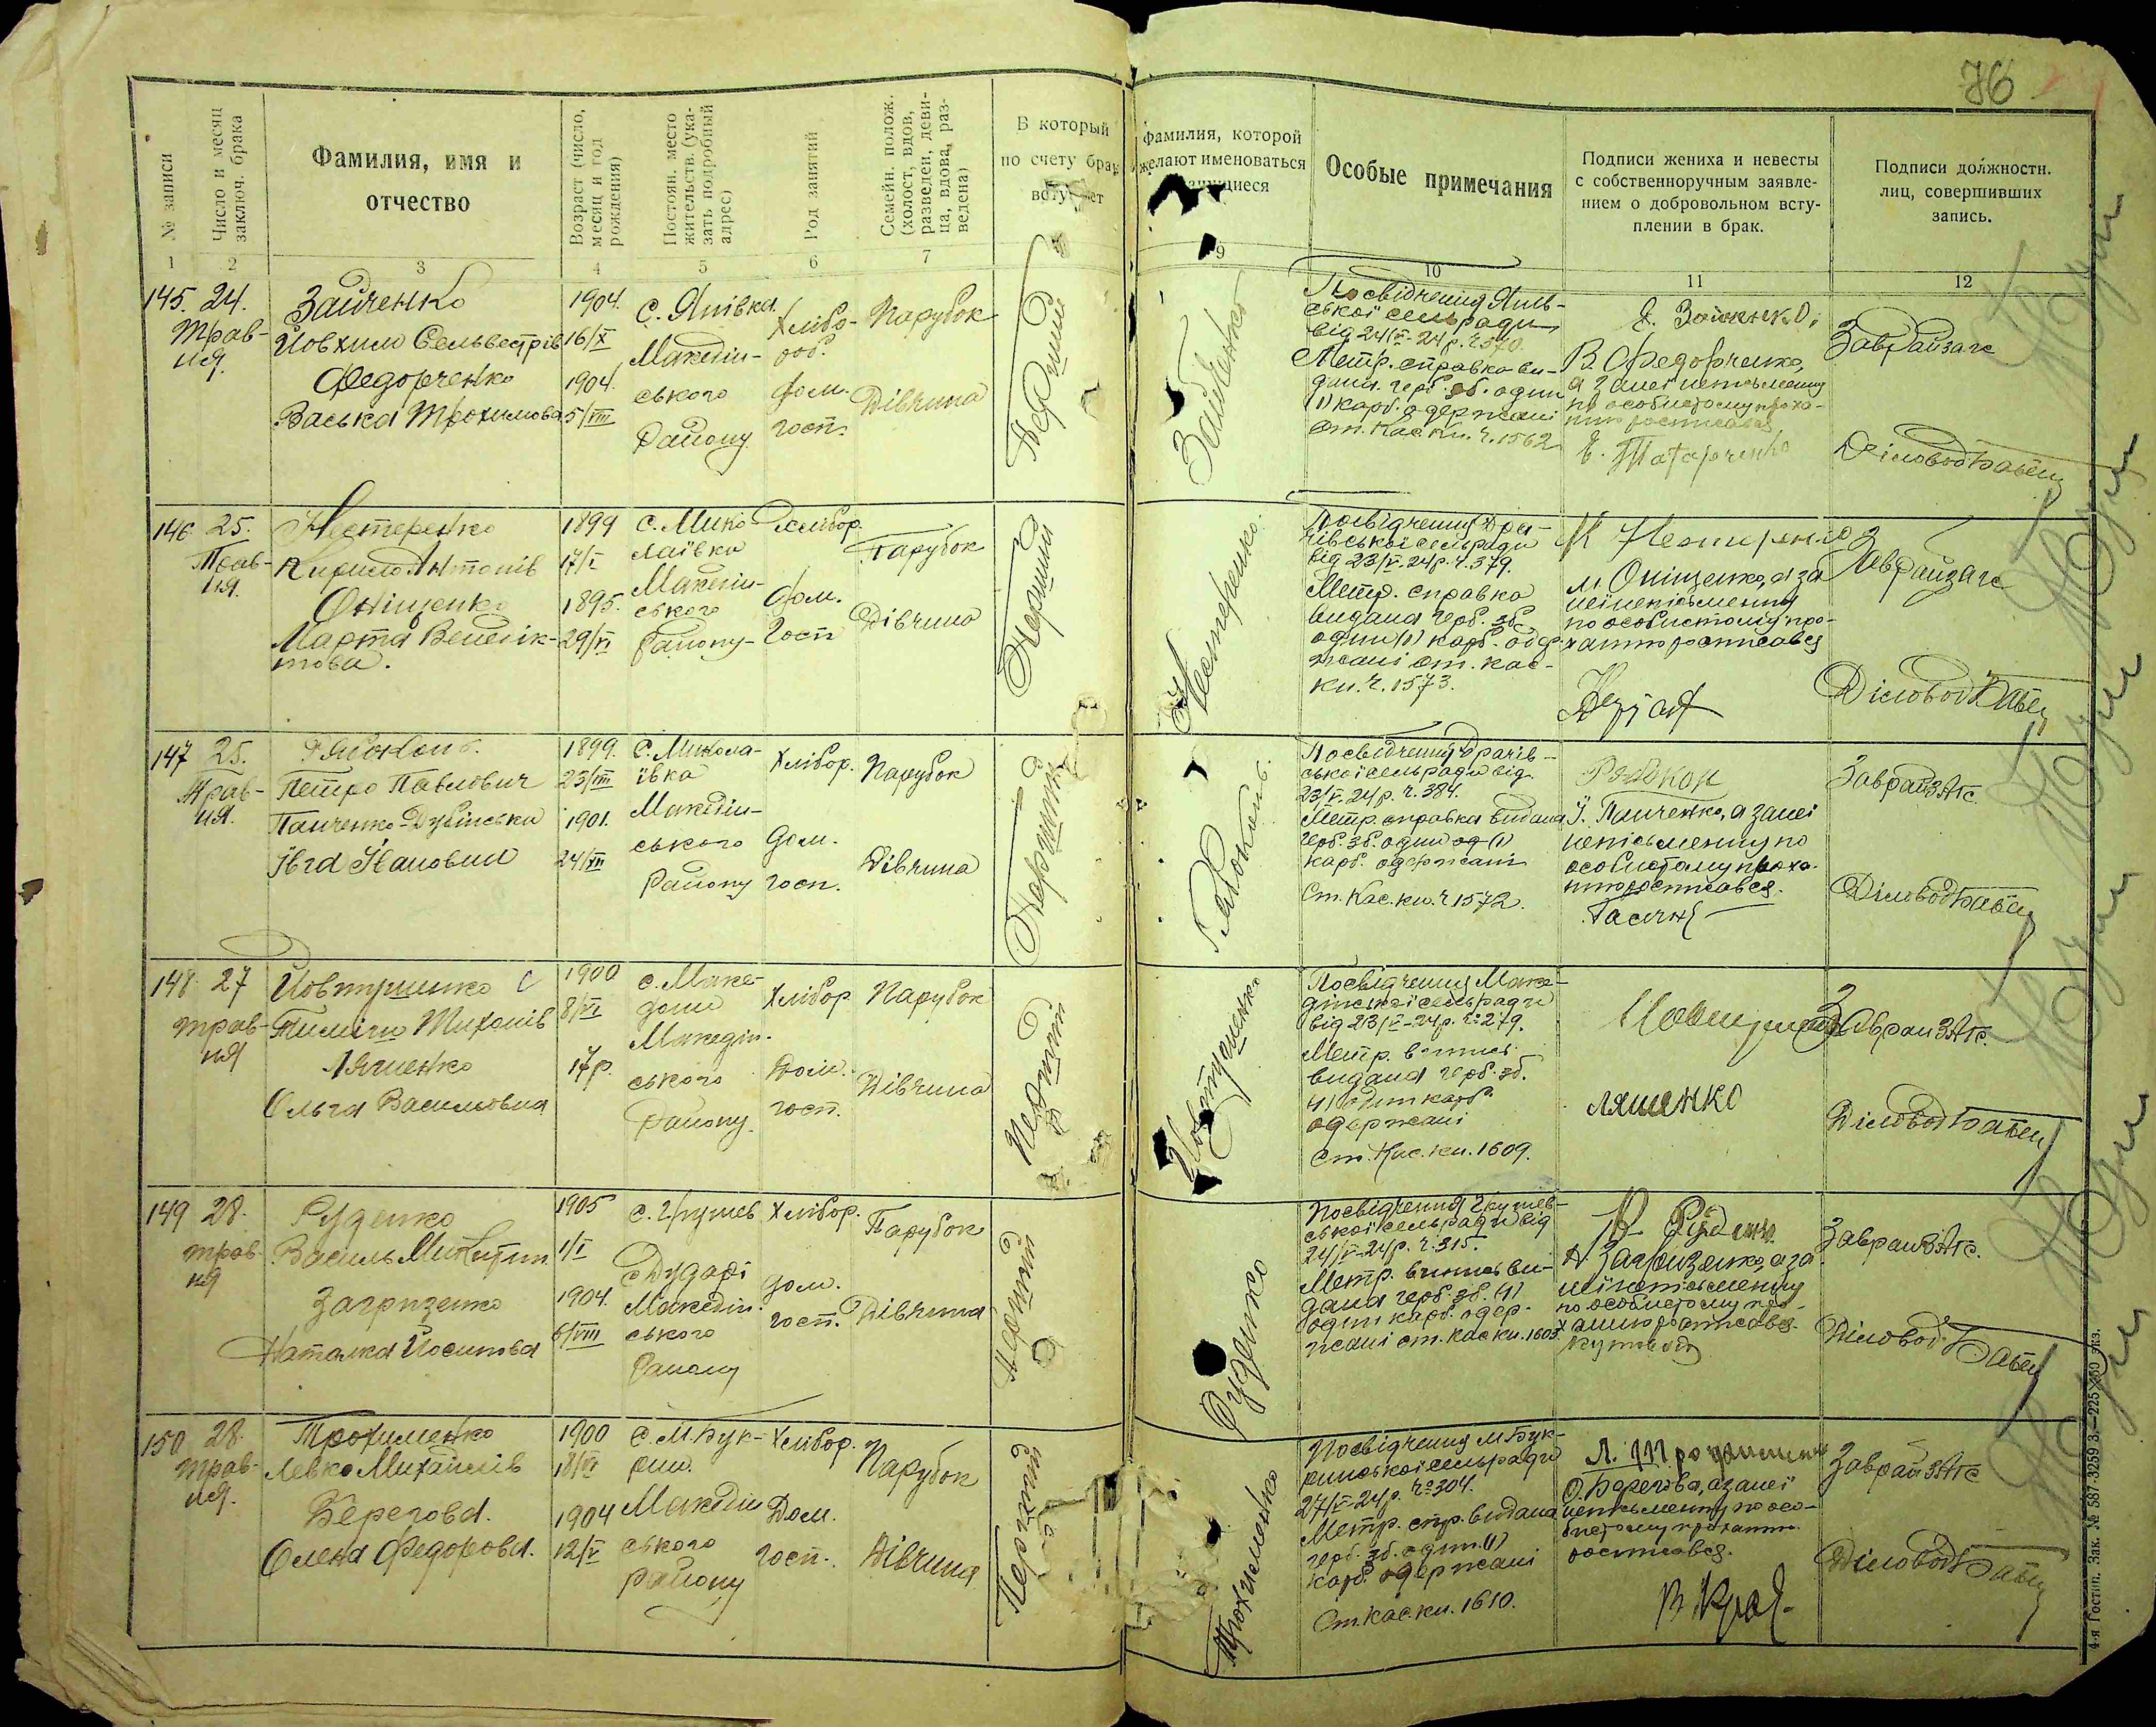 76
№ записи
Число и месяц
заключ. брака
Фамилия, имя и
отчество
Возраст (число,
месяц и год
рождения)
Постоян. место
жительств. (ука-
зать подробный
адрес)
Род занятий
Семейн. полож.
(холост, вдов,
разведен, деви-
ца, вдова, раз-
ведена)
В который
по счету брак
вступает
Фамилия, которой
желают именоваться
Особые примечания
Подписи жениха и невесты
с собственноручным заявле-
нием о добровольном всту-
плении в брак.
Подписи должностн.
лиц, совершивших
запись.
1 2 3 4 5 6 7 9 10 11 12
145. 24.
Трав-
ня.
Зайченко
Йовхим Сельвестрів
Федорченко
Васька Трохимова
1904.
16/X
1904.
5/VIII
с. Яхнівка
Македон-
ського
Району
Хлібо-
роб.
Дом.
госп.
Парубок
Дівчина
Перший
Зайченко
від 24/V-24р. ч. 570.
Метр. справка ви-
дана. герб. зб. один
(1) карб. одержані
ст. Кас. кн. ч. 1562
В. Федорченко,
а за неї неписьменну
по особистому проха-
нню росписався
Є. Татарченко
Заврайзагс
Діловод
146 25.
Трав-
ня.
Нестеренко
Кирило Антонів
Оніщенко
Марта Венедік-
това.
1899
17/I
1895.
29/VI
с. Мико
лаївка
Македон-
ського
Району
Хлібор.
Дом.
Госп
Парубок
Дівчина
Перший
Нестеренко.
від 23/V-24р. ч. 379.
Метр. справка
видана герб. зб.
один (1) карб. одер
жані ст. кас-
кн. ч. 1573.
М. Оніщенко, а за
неї неписьменну
по особистому про-
ханню росписався
Заврайзагс
Діловод
147 25.
Трав-
ня.
Рябоконь.
Петро Павлович
Панченко-Дубінська
Івга Івановна
1899.
23/III
1901.
24/XII
с. Микола-
ївка
Македон-
ського
Району
Хлібор.
Дом.
госп.
Парубок
Дівчина
Перший
Рябоконь.
Посвідчення Драчів-
ської сельради від
23/V-24р. ч. 384.
Метр. справка видана
герб. зб. один (1)
карб. одержані
Ст. Кас. кн. ч 1572.
Рябокон
Ї. Панченко, а за неї
неписьменну по
особистому проха-
нню росписався.
Заврайзагс.
Діловод
148 27
трав-
ня
Йовтушенко
Тихонів
Ляшенко
Ольга Васильовна
1900
8/VI
17р.
с. Маке-
дони
Македон-
ського
Району.
Хлібор
Дом.
госп.
Парубок
Дівчина
Перший
Йовтушенко
від 23/V-24р. ч. 279.
Метр. виписі
видана герб. зб.
(1) один карб.
одержані
Ст. Кас. кн. 1609.
Ляшенко
Завраизагс.
Діловод
149 28.
трав-
ня
Руденко
Василь Микитин
Загризенко
Наталка Йосипова
1905
1/I
1904.
6/VIII
с. Грушев
с Дударі
Македон-
ського
Району
Хлібор.
Дом.
госп.
Парубок
Дівчина
Перший
Руденко
Посвідчення Грушев-
ської сельради від
24/V-24р. ч. 315.
Метр. виписі ви-
дана герб. зб. (1)
один карб. одер-
жані ст. кас кн. 1603.
Н Загризенко, а за
неї неписьменну
по особистому про-
ханню росписався.
Завраизагс.
Діловод
150 28.
трав-
ня.
Трохименко
Левко Михайлів
Берегова.
Олена Федорова.
1900
18/II
1904
12/V
с. М. Бук-
рин.
Македон
ського
Району
Хлібор.
Дом.
госп.
Парубок
Дівчина
Перший
Трохименко
Посвідчення М Бук-
ринської сельради
27/V-24р. ч. 304.
Метр. спр. видана
герб. зб. один (1)
карб. одержані
Ст. кас. кн. 1610.
О. Берегова, а за неї
неписьменну по осо-
бистому проханню
росписався.
Завраизагс
Діловод
4-я Гостип. Зак. № 587-3259 3.—225×30 экз.